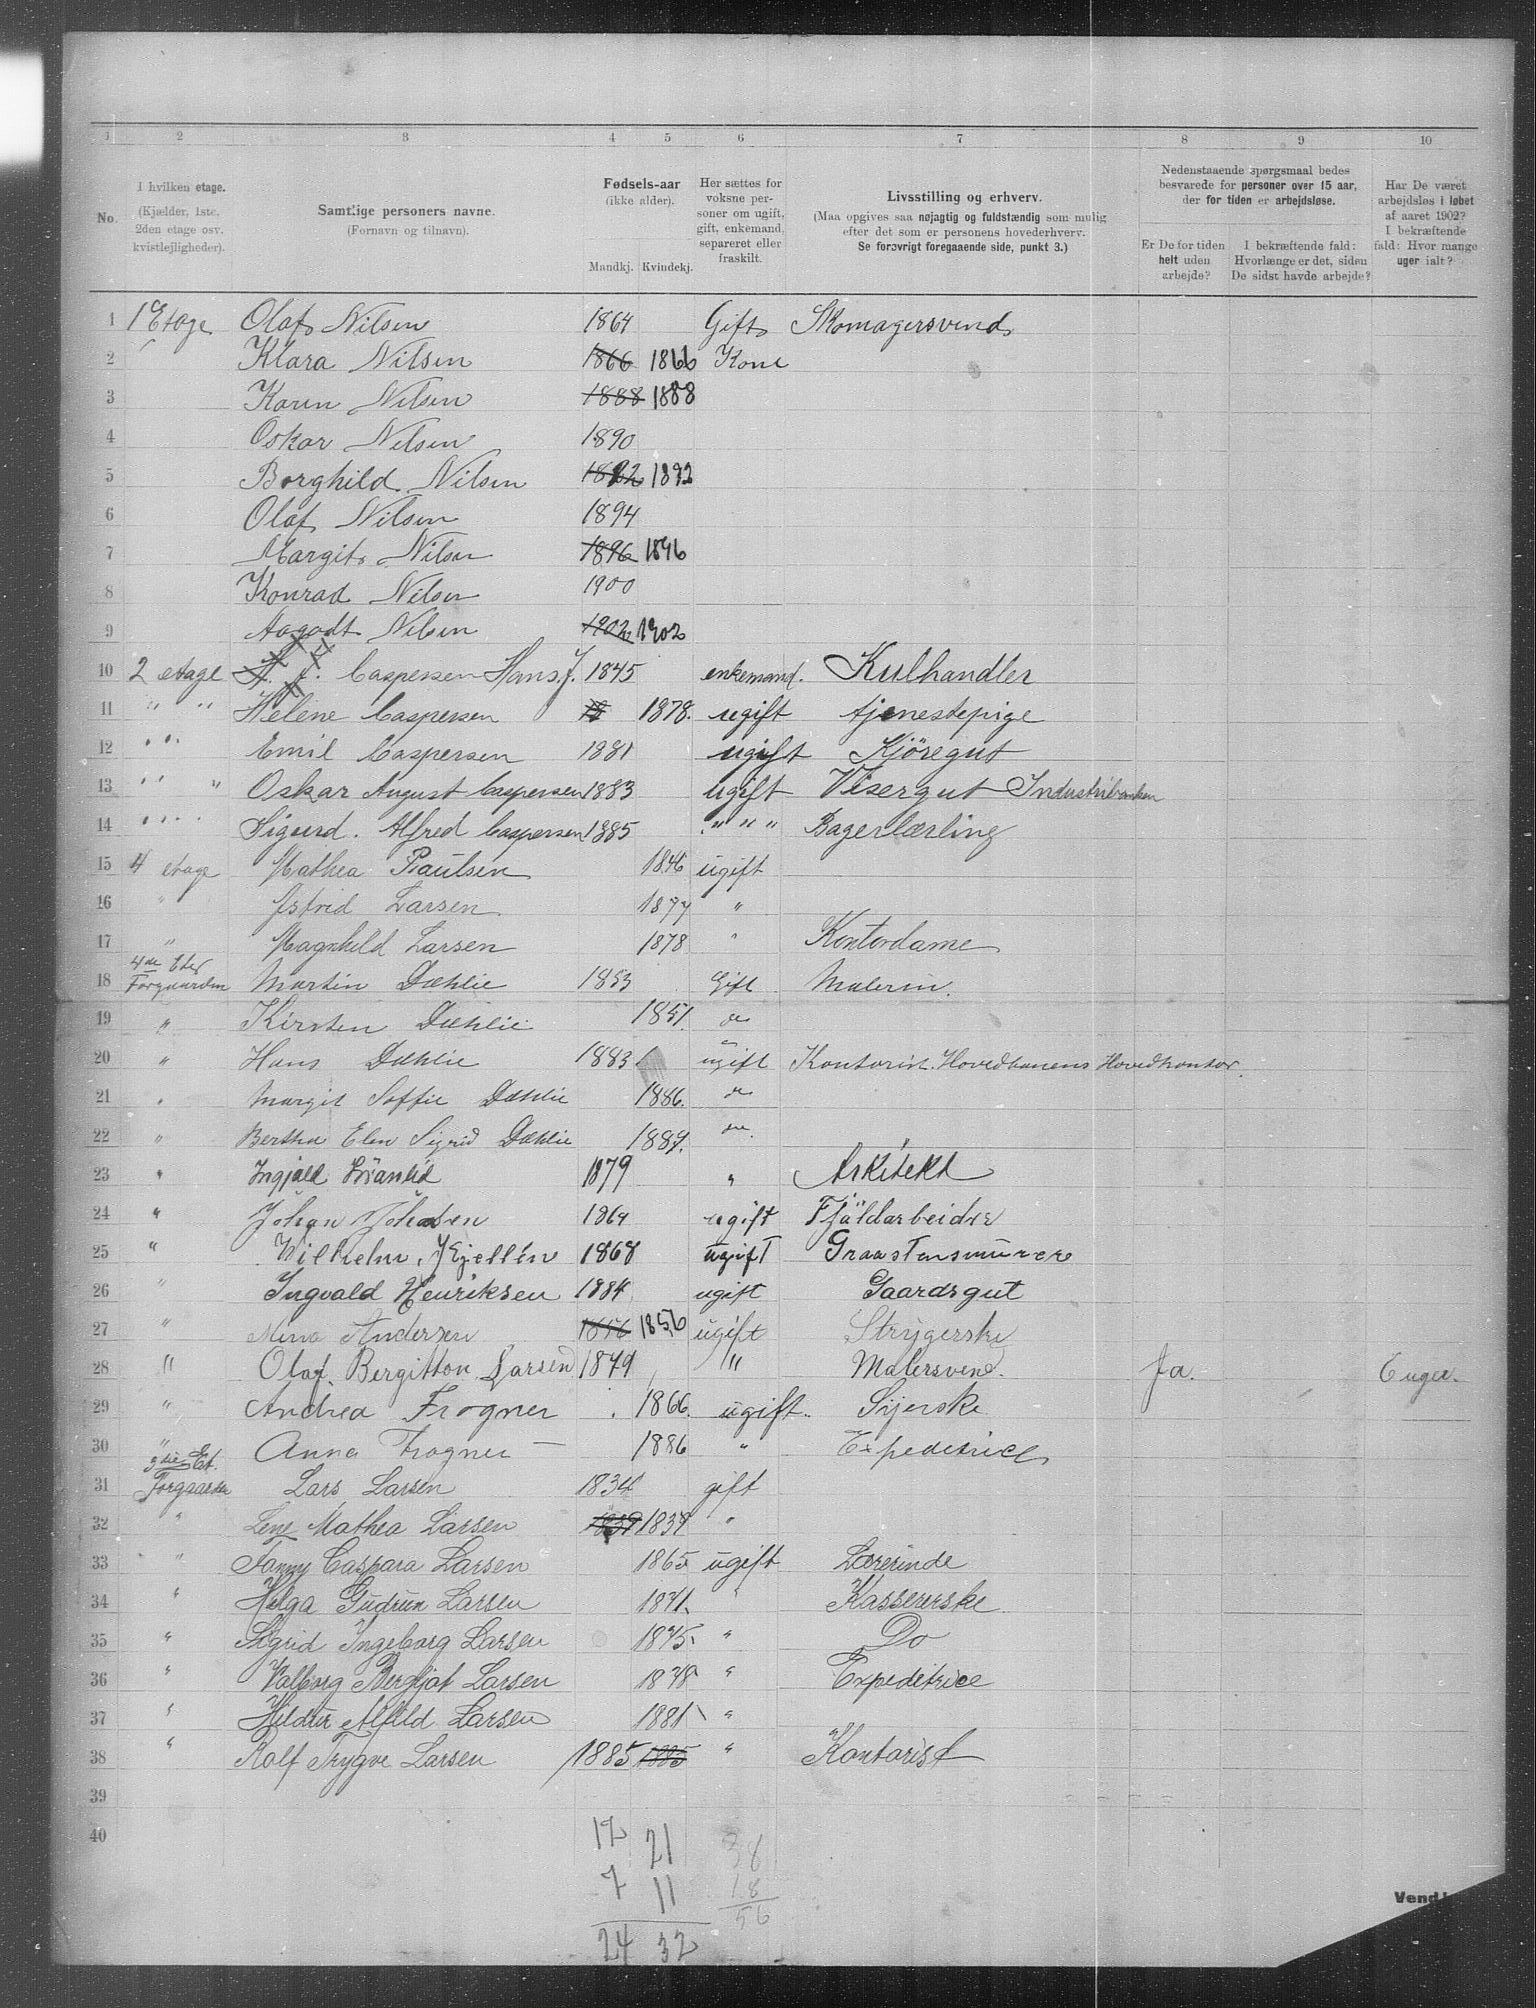 1 2 3 4 5 6 7 8 9 10
No.
I hvilken etage.
(Kjælder, 1ste,
2den etage osv.
kvistlejligheder).
Samtlige personers navne.
(Fornavn og tilnavn).
Fødsels-aar
(ikke alder).
Mandkj. Kvindekj.
Her sættes for
voksne per-
soner om ugift,
gift, enkemand,
separeret eller
fraskilt.
Livsstilling og erhverv.
(Maa opgives saa nøjagtig og fuldstændig som mulig
efter det som er personens hovederhverv.
Se forøvrigt foregaaende side, punkt 3.)
Nedenstaaende spørgsmaal bedes
besvarede for personer over 15 aar,
der for tiden er arbejdsløse.
Er De for tiden
helt uden
arbejde?
I bekræftende fald:
Hvorlænge er det, siden
De sidst havde arbejde?
Har De været
arbejdsløs i løbet
af aaret 1902?
I bekræftende
fald: Hvor mange
uger ialt?
1 1 Etage Olaf Nilsen 1864 Gift Skomagersvend
2 Klara Nilsen 1866 1866 Kone
3 Karen Nilsen 1888 1888
4 Oskar Nilsen 1890
5 Borghild Nilsen 1892 1892
6 Olaf Nilsen 1894
7 Margit Nilsen 1896 1896
8 Konrad Nilsen 1900
9 Aagodt Nilsen 1902 1902
10 2 etage H. J. Caspersen Hans. J. 1845 enkemand. Kulhandler
11 " " Helene Caspersen 1878. ugift tjenestepige
12 " " Emil Caspersen 1881 ugift Kjöregut
13 " " Oskar August Caspersen 1883 ugift Visergut Industribanken
14 " " Sigurd. Alfred Caspersen 1885 " " " Bagerlærling
15 4 etage Mathea Paulsen 1846 ugift
16 " Astrid Larsen 1877 "
17 " Magnhild Larsen 1878 " Kontordame
18 4de Etg Forgaarden Martin Dæhlie 1853 Gift Malerm.
19 " Kirsten Dæhlie 1851. do
20 " Hans Dæhlie 1883 ugift Kontorist. Hovedbanens Hovedkontor.
21 " Margit Soffie Dæhlie 1886. do
22 " Bertha Elen Sigrid Dæhlie 1887. do
23 " Ingjald 1879 " Arkitekt
24 " Johan Johansen 1864 ugift Fjäldarbeider
25 " Wilhelm Kjellén 1868 ugift Graastensmurere
26 " Ingvald Henriksen 1884 ugift Gaardsgut
27 " Mina Andersen 1856 1856 ugift Strygerske
28 " Olaf. Bergitton Larsen 1879 " Malersvend. Ja. 6 uger.
29 " Andrea Frogner 1866. ugift. Sijerske
30 " Anna Frogner 1886 " Expeditrice
31 3die Et. Forgaarden Lars Larsen 1834 gift
32 " Lene Mathea Larsen 1839 1839 "
33 " Fanny Caspara Larsen 1865 ugift Lærerinde
34 " Helga Gudrun Larsen 1871. " Kassererske
35 " Sigrid Ingeborg Larsen 1875. " Do
36 " Valborg Bergljot Larsen 1878 " Expeditrice
37 " Hildur Alfild Larsen 1881 "
38 " Rolf Trygve Larsen 1885 1885 " Kontorist
39
40
17 21 38
7 11 18
56
24 32
Vend